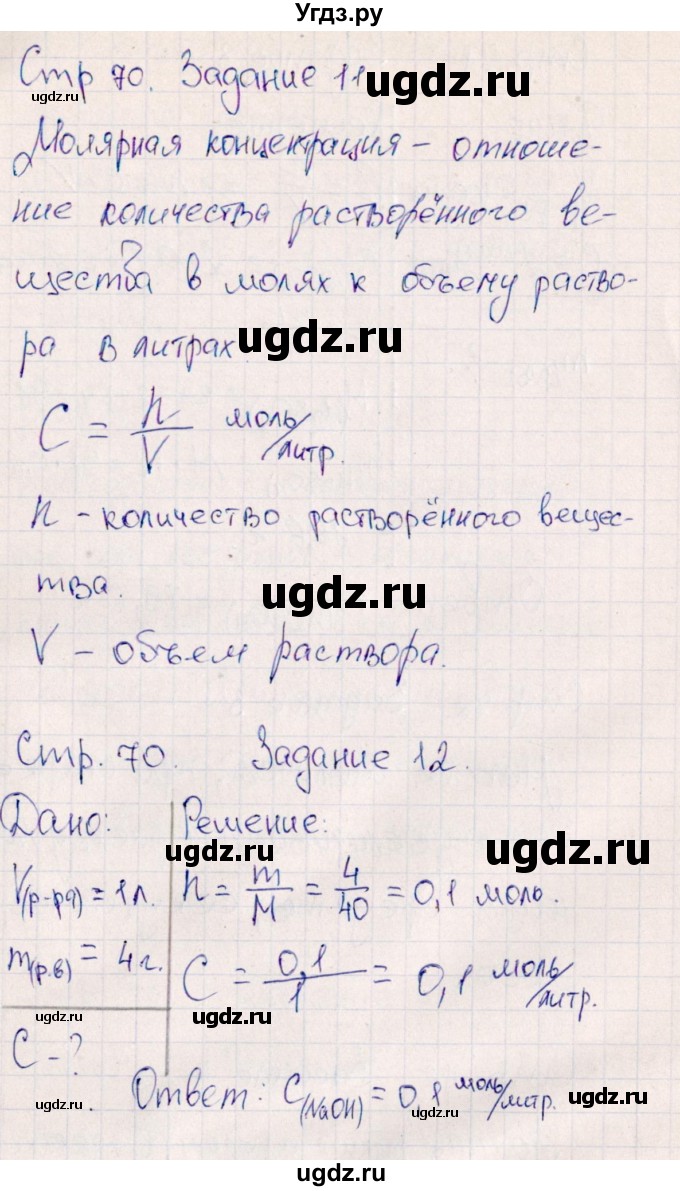 Угдз.ру
Стр 70. Задание 11
ugdz.ru
ugdz.ru
ugdz.ru
Молярная концентрация – отноше-
ние количества растворённого ве-
щества в молях к объему раство-
ра в литрах.
ugdz.ru
C = n/V моль/литр.
n - количество растворённого вещес-
тва.
ugdz.ru
V – объем раствора.
Стр. 70. Задание 12.
Дано: Решение:
ugdz.ru
ugdz.ru
V(р-ра) = 1л. n = m/M = 4/40 = 0,1 моль.
m(р.в) = 4г. C = 0,1/1 = 0,1 моль/литр.
ugdz.ru
ugdz.ru
C - ?
Ответ: C(NaOH) = 0,1 моль/литр.
ugdz.ru
ugdz.ru
ugdz.ru
ugdz.ru